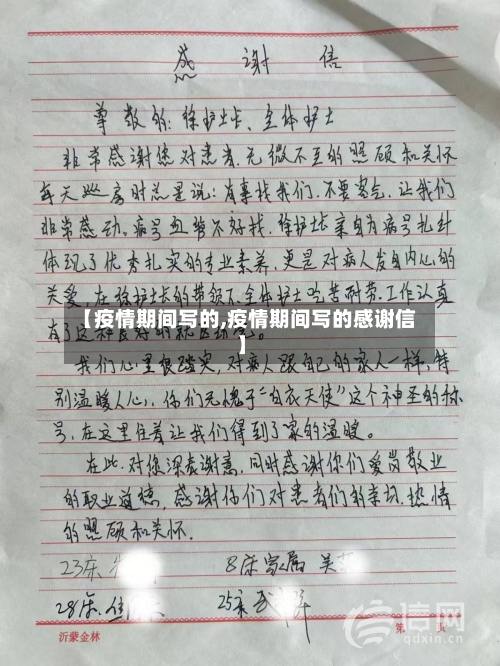 感谢信
尊敬的：徐护士长、全体护士
非常感谢您对患者无微不至的照顾和关怀
每天巡房时总是说：有事找我们，不要客气，让我们
非常感动。病号血管不好找，徐护士长亲自为病号扎针
体现了优秀扎实的专业素养，更是对病人发自内心的
关爱，在徐护士长的带领下，全体护士吃苦耐劳，工作认真
【疫情期间写的,疫情期间写的感谢信
】
我们心里很踏实，对病人跟自己的家人一样，特
别温暖人心，你们无愧于“白衣天使”这个神圣的称
号，在这里住着让我们得到了家的温暖。
在此，对你深表谢意，同时感谢你们爱岗敬业
的职业道德，感谢你们对患者们的亲切、热情
的照顾和关怀.
23床
8床家属 吴
28床
25床
沂蒙金林
第 页
信网
qdxin.cn